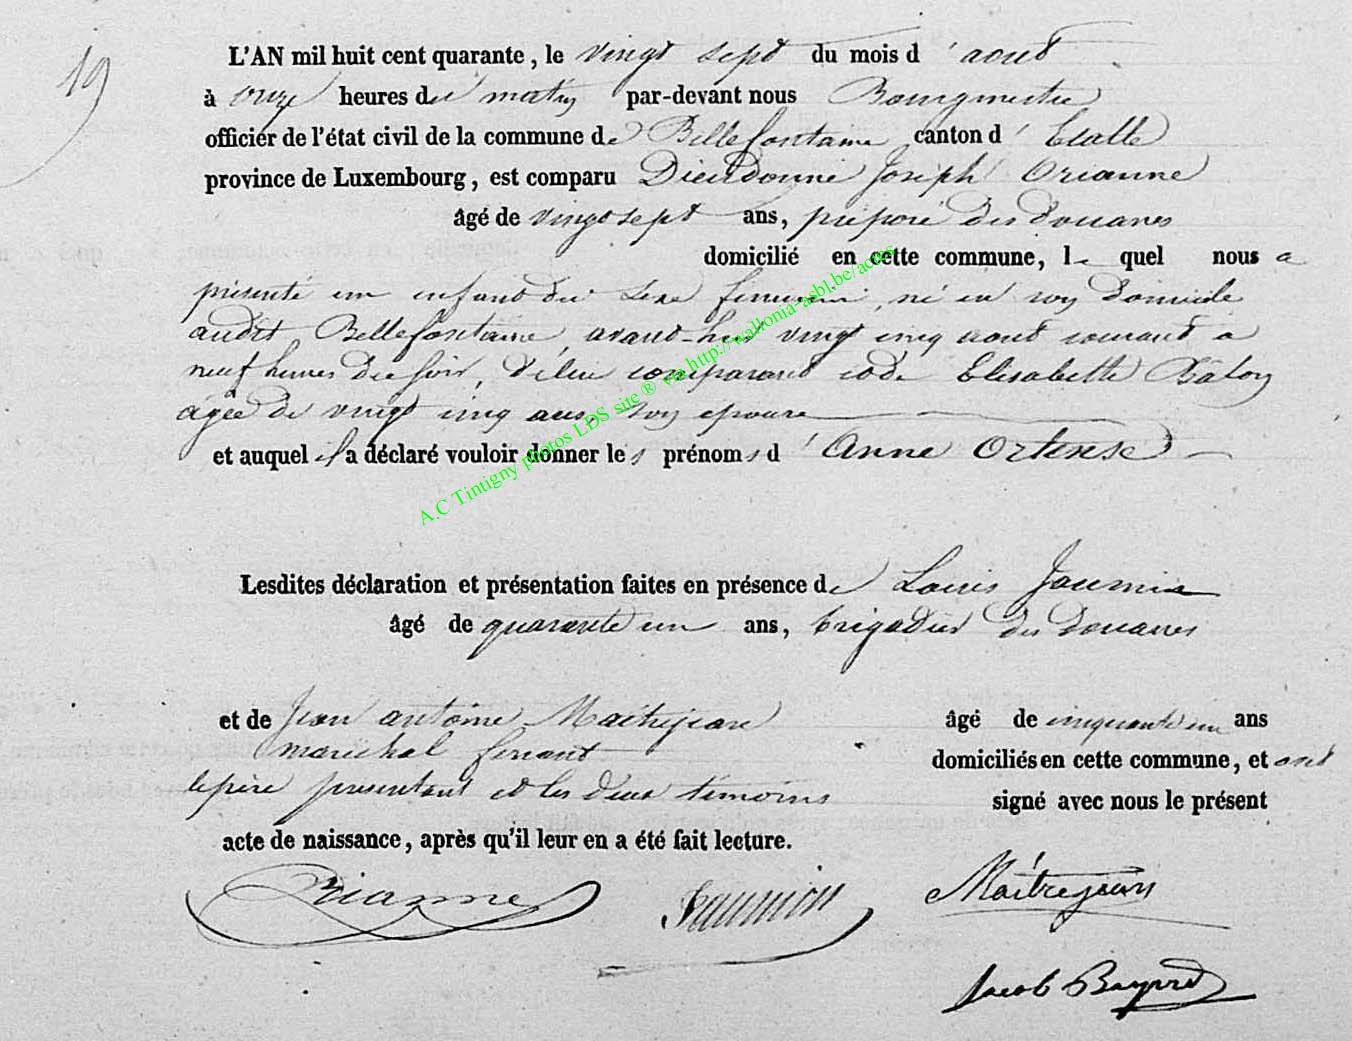 19
L'AN mil huit cent quarante, le vingt sept du mois d'aout
à onze heures du matin par-devant nous Bourgmestre
officier de l'état civil de la commune de Bellefontaine canton d'Etalle
province de Luxembourg, est comparu Dieudonné Joseph Orianne
âgé de vingt sept ans, préposé des douanes
domicilié en cette commune, le quel nous a
présenté un enfant du sexe feminin, né en son domicile
audit Bellefontaine, avant-hier vingt cinq aout courant a
neuf heures du soir, de lui comparant et de Elisabethe Baloy
agée de vingt cinq ans, son epouse
et auquel il a déclaré vouloir donner les prénoms d'Anne Ortense
Lesdites déclaration et présentation faites en présence de Louis Jaumin
âgé de quarante un ans, brigadier des douanes
et de Jean antoine Maitrejean âgé de cinquante un ans
maréchal ferrant domiciliés en cette commune, et ont
le père presentant et les deux témoins signé avec nous le présent
acte de naissance, après qu'il leur en a été fait lecture.
Orianne Jaumion Maîtrejean
Jacob Bayard
A.C Tintigny photos LDS site ® via http://wallonia-asbl.be/actes